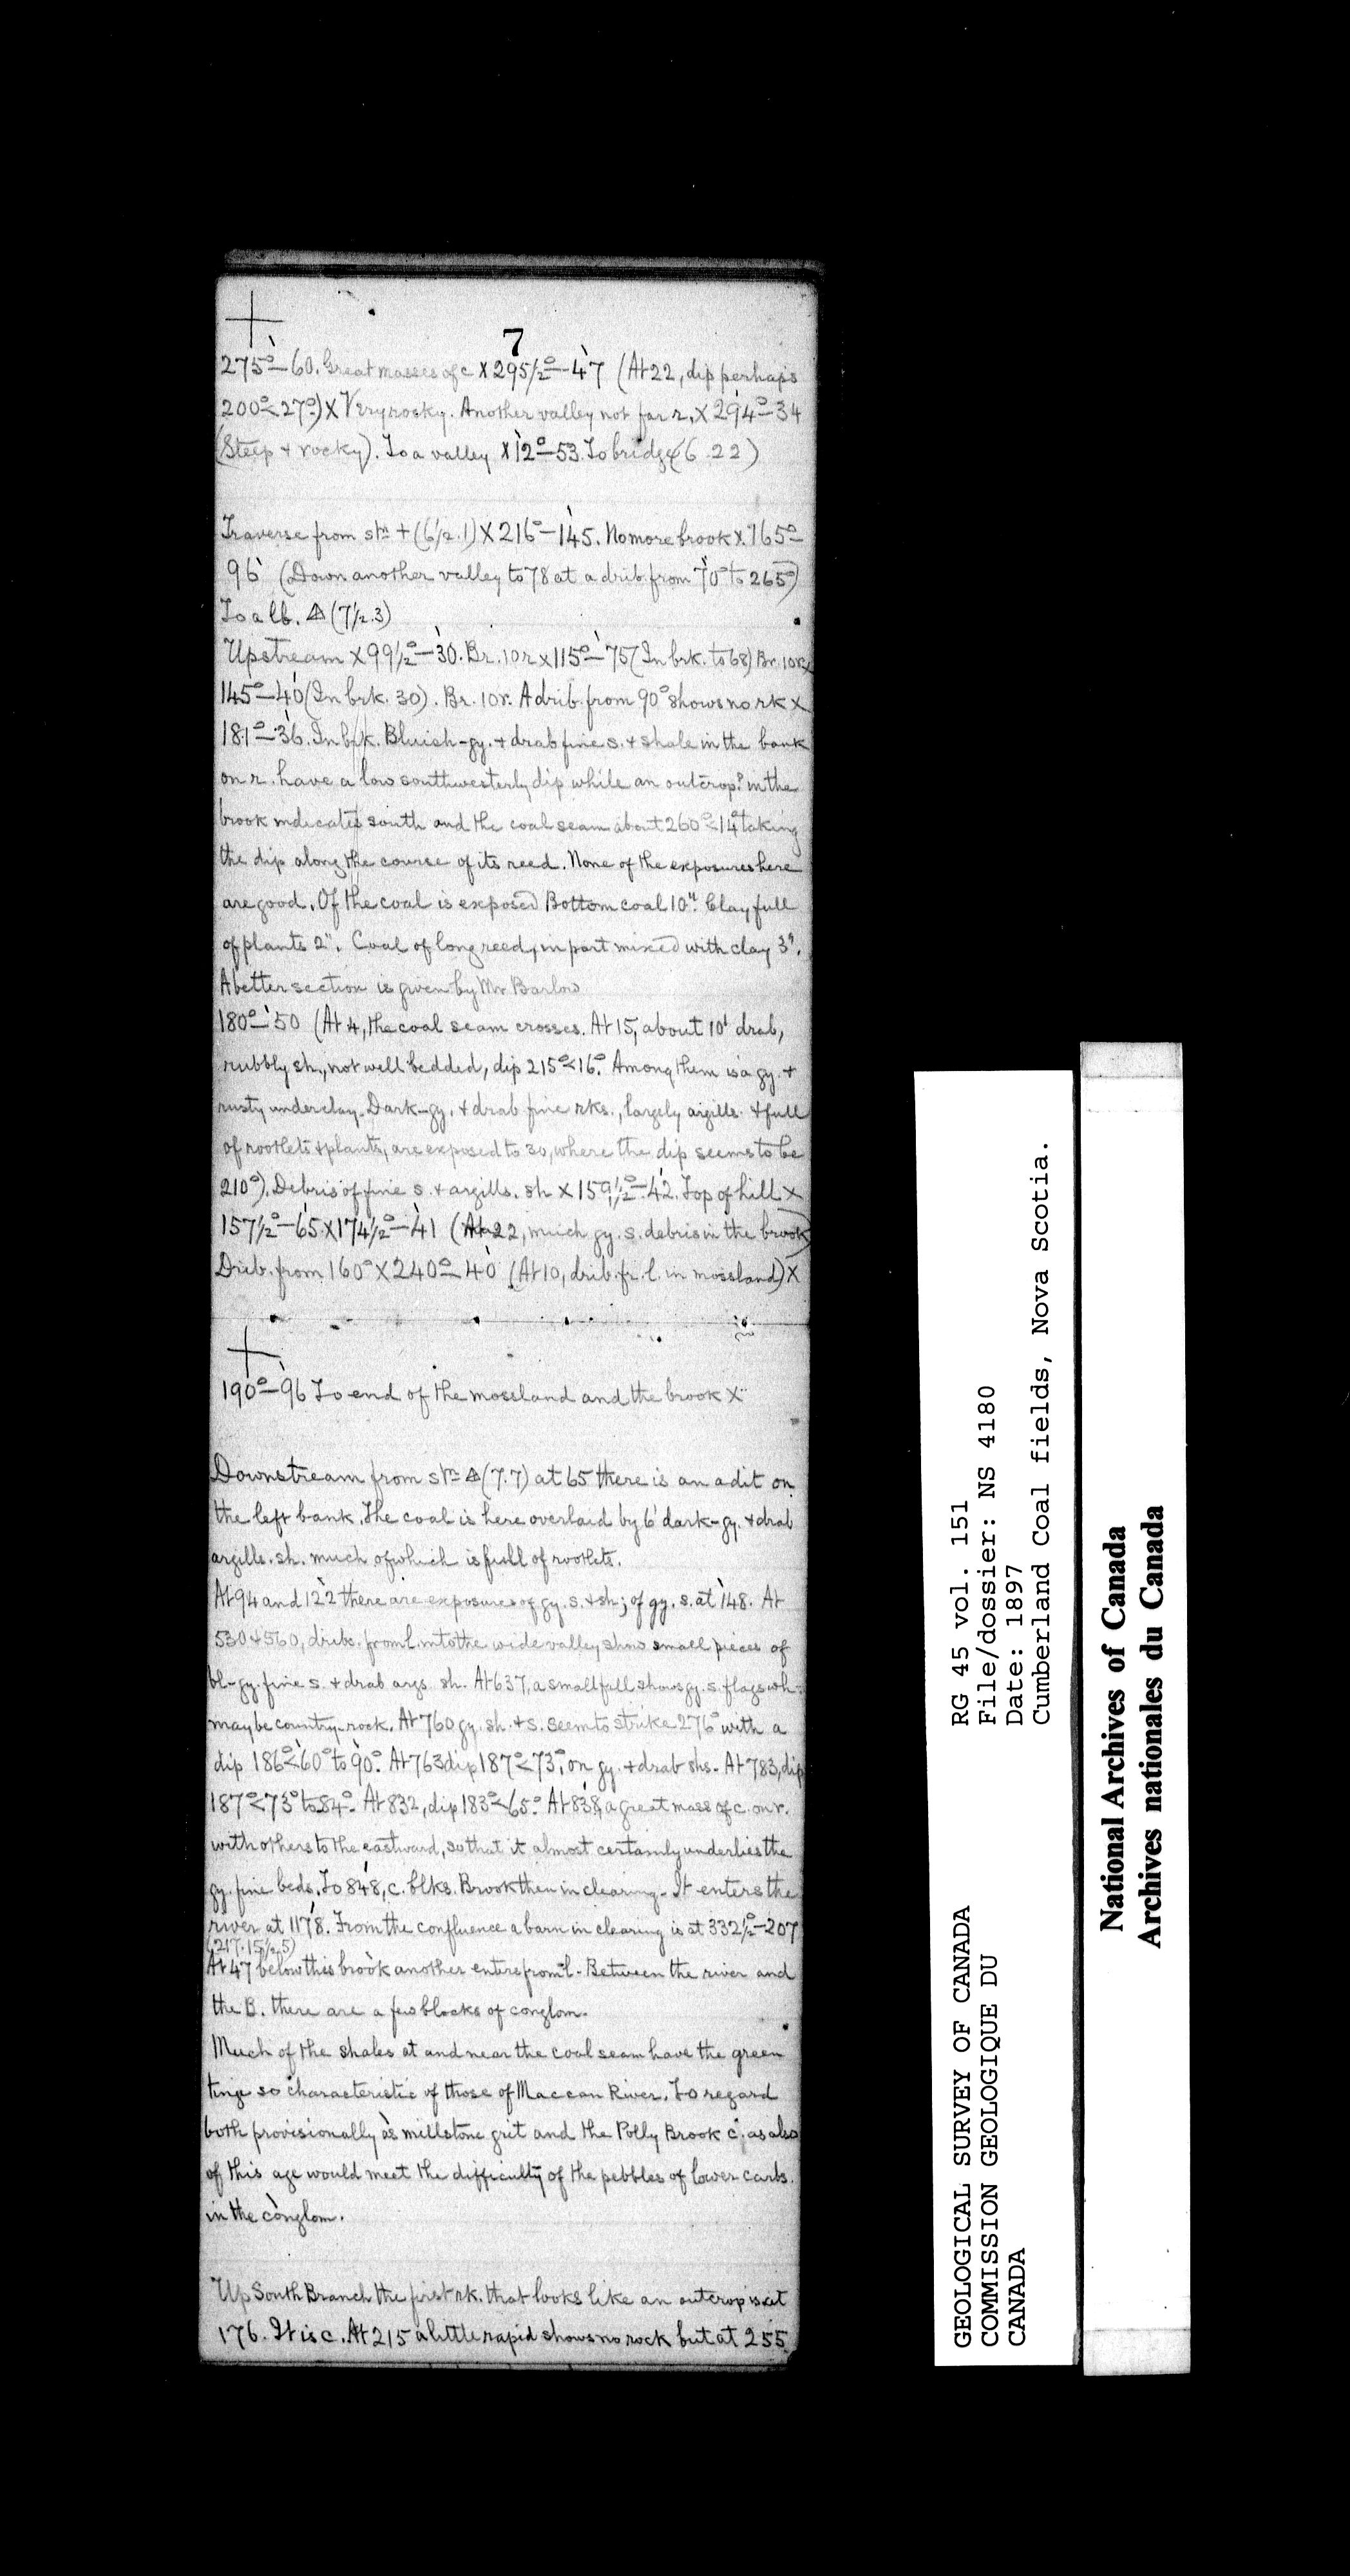 7
275°–60. Great masses of c X 295½°–47 (At 22, dip perhaps
200°<27°) X Very rocky. Another valley not far r. X 294°–34
(Steep + rocky). To a valley X 12°–53. To bridge (6.22)
Traverse from stn + (6½.1) X 216°–145. No more brook X 165°–
96 (Down another valley to 78 at a drib. from 70° to 265°)
To a lb. △ (7½.3)
Upstream X 99½°–30. Br. 10 r X 115°–75 (In brk. to 68) Br. 10 r. X
145°–40 (In brk. 30). Br. 10 r. A drib. from 90° shows no rk X
181°–36. In brk. Bluish-gy. + drab fine s. + shale in the bank
on r. have a low southwesterly dip while an outcrop? in the
brook indicates south and the coal seam about 260°<14° taking
the dip along the course of its reed. None of the exposures here
are good. Of the coal is exposed Bottom coal 10". Clay full
of plants 2". Coal of long reed, in part mixed with clay 3".
A better section is given by Mr Barlow
180°–50 (At 4, the coal seam crosses. At 15, about 10' drab,
rubbly sh., not well bedded, dip 215°<16°. Among them is a gy. +
rusty underclay. Dark-gy. + drab fine rks., largely argills. + full
of rootlets + plants, are exposed to 30, where the dip seems to be
210°). Debris of fine s. + argills. sh X 159½°–42. Top of hill X
157½°–65 X 174½°–41 (At 22, much gy. s. debris in the brook)
Drib. from 160° X 240°–40 (At 10, drib. fr. l. in mossland) X
190°–96 To end of the mossland and the brook X
Downstream from stn △ (7.7) at 65 there is an adit on
the left bank. The coal is here overlaid by 6' dark-gy. + drab
argills. sh. much of which is full of rootlets.
At 94 and 122 there are exposures of gy. s. + sh; of gy. s. at 148. At
530 + 560, dribs. from l. into the wide valley show small pieces of
bl-gy. fine s. + drab args. sh. At 637, a small fall shows gy. s. flags wh.
may be country-rock. At 760 gy. sh. + s. seem to strike 276° with a
dip 186°<60° to 90°. At 763 dip 187°<73°, on gy. + drab shs. At 783, dip
187°<73° to 84°. At 832, dip 183°<65°. At 838, a great mass of c. on r.
with others to the eastward, so that it almost certainly underlies the
gy. fine beds. To 848, c. blks. Brook then in clearing. It enters the
river at 1178. From the confluence a barn in clearing is at 332½°–207
(217.15½.5)
At 47 below this brook another enters from l. Between the river and
the B. there are a few blocks of conglom.
Much of the shales at and near the coal seam have the green
tinge so characteristic of those of Maccan River. To regard
both provisionally as millstone grit and the Polly Brook c. as also
of this age would meet the difficulty of the pebbles of lower carb.
in the conglom.
Up South Branch the first rk. that looks like an outcrop is at
176. It is c. At 215 a little rapid shows no rock but at 255
GEOLOGICAL SURVEY OF CANADA
COMMISSION GEOLOGIQUE DU
CANADA
RG 45 vol. 151
File/dossier: NS 4180
Date: 1897
Cumberland Coal fields, Nova Scotia.
National Archives of Canada
Archives nationales du Canada